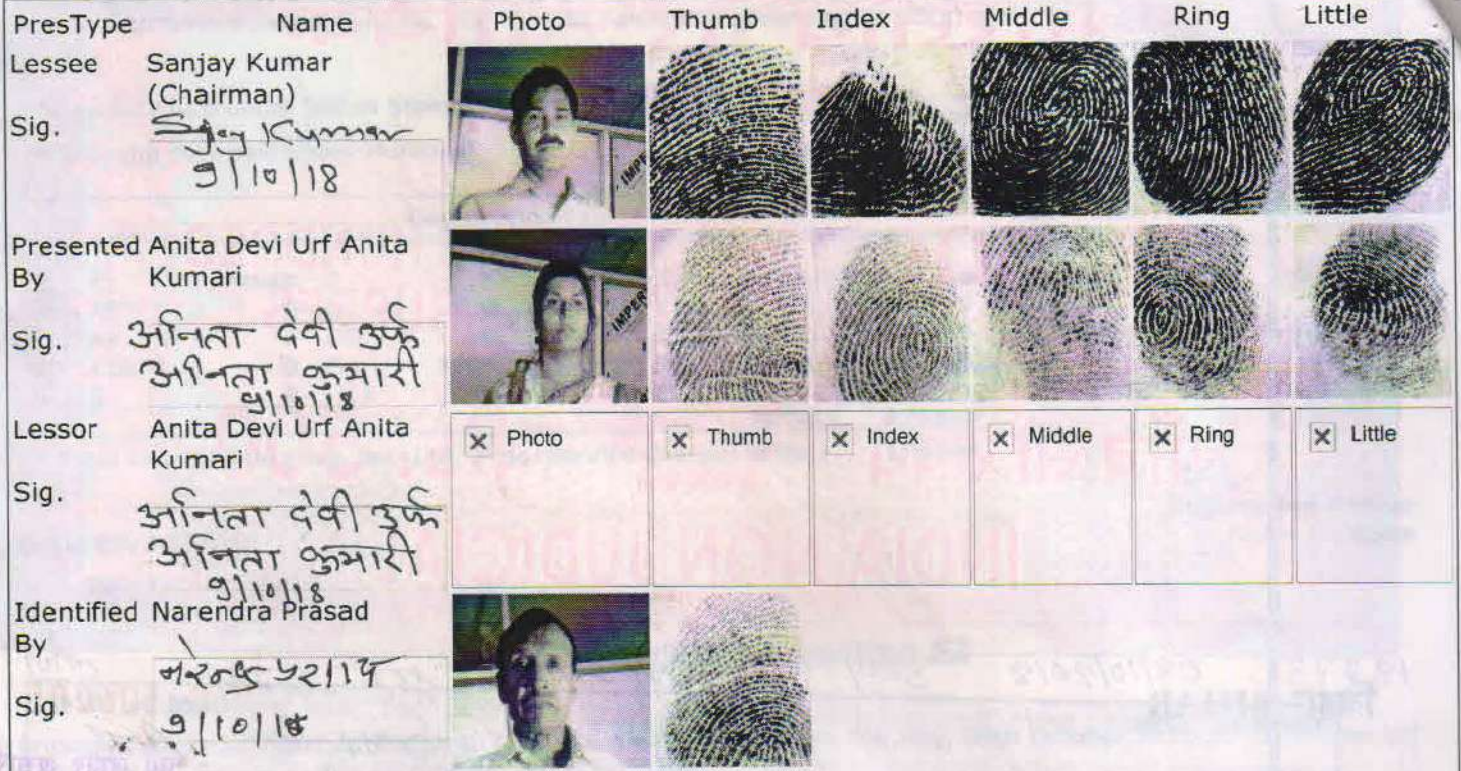 PresType Name Photo Thumb Index Middle Ring Little
Lessee Sanjay Kumar
(Chairman)
Sig. Sajay Kumar
9/10/18
Presented Anita Devi Urf Anita
By Kumari
Sig. अनिता देवी उर्फ
अनिता कुमारी
9/10/18
Lessor Anita Devi Urf Anita Photo Thumb Index Middle Ring Little
Kumari
Sig.
अनिता देवी उर्फ
अनिता कुमारी
9/10/18
Identified Narendra Prasad
By
नरेन्द्र प्रसाद
Sig. 9/10/18